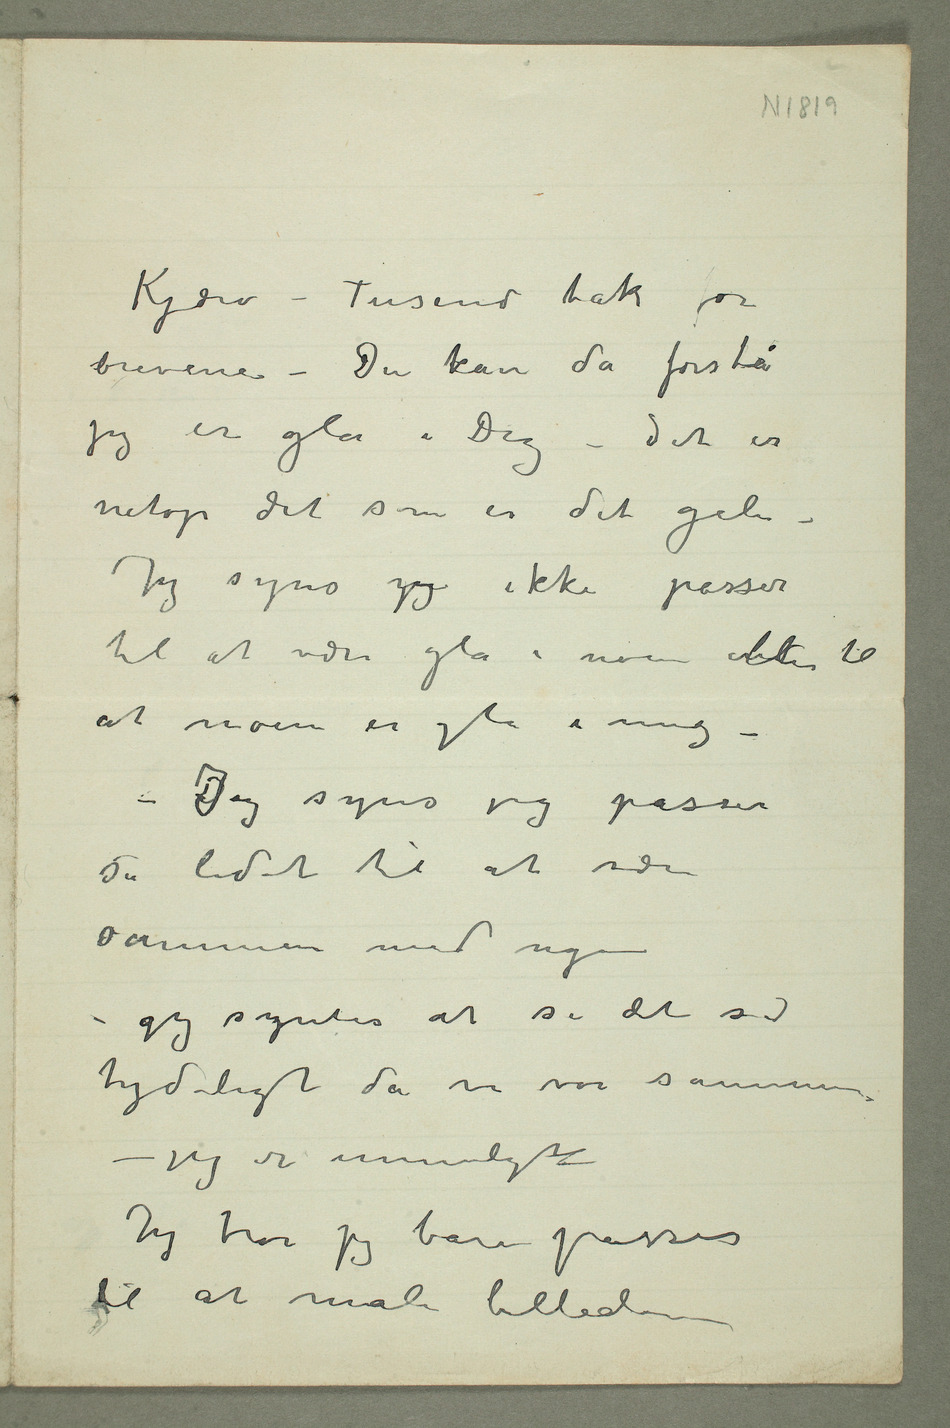 N1819
Kjære – Tusend tak for
brevene – Du kan da forstå
jeg er gla i Dig – det er
netop det som er det gale –
Jeg synes jeg ikke passer
til at være gla i noen eller til
at noen er gla i mig –
– Jeg synes jeg passer
så lidet til at være
sammen med nogen
– jeg syntes at se det så
tydeligt da vi var sammen.
– jeg er umuligt
Jeg tror jeg bare passer
til at male billeder